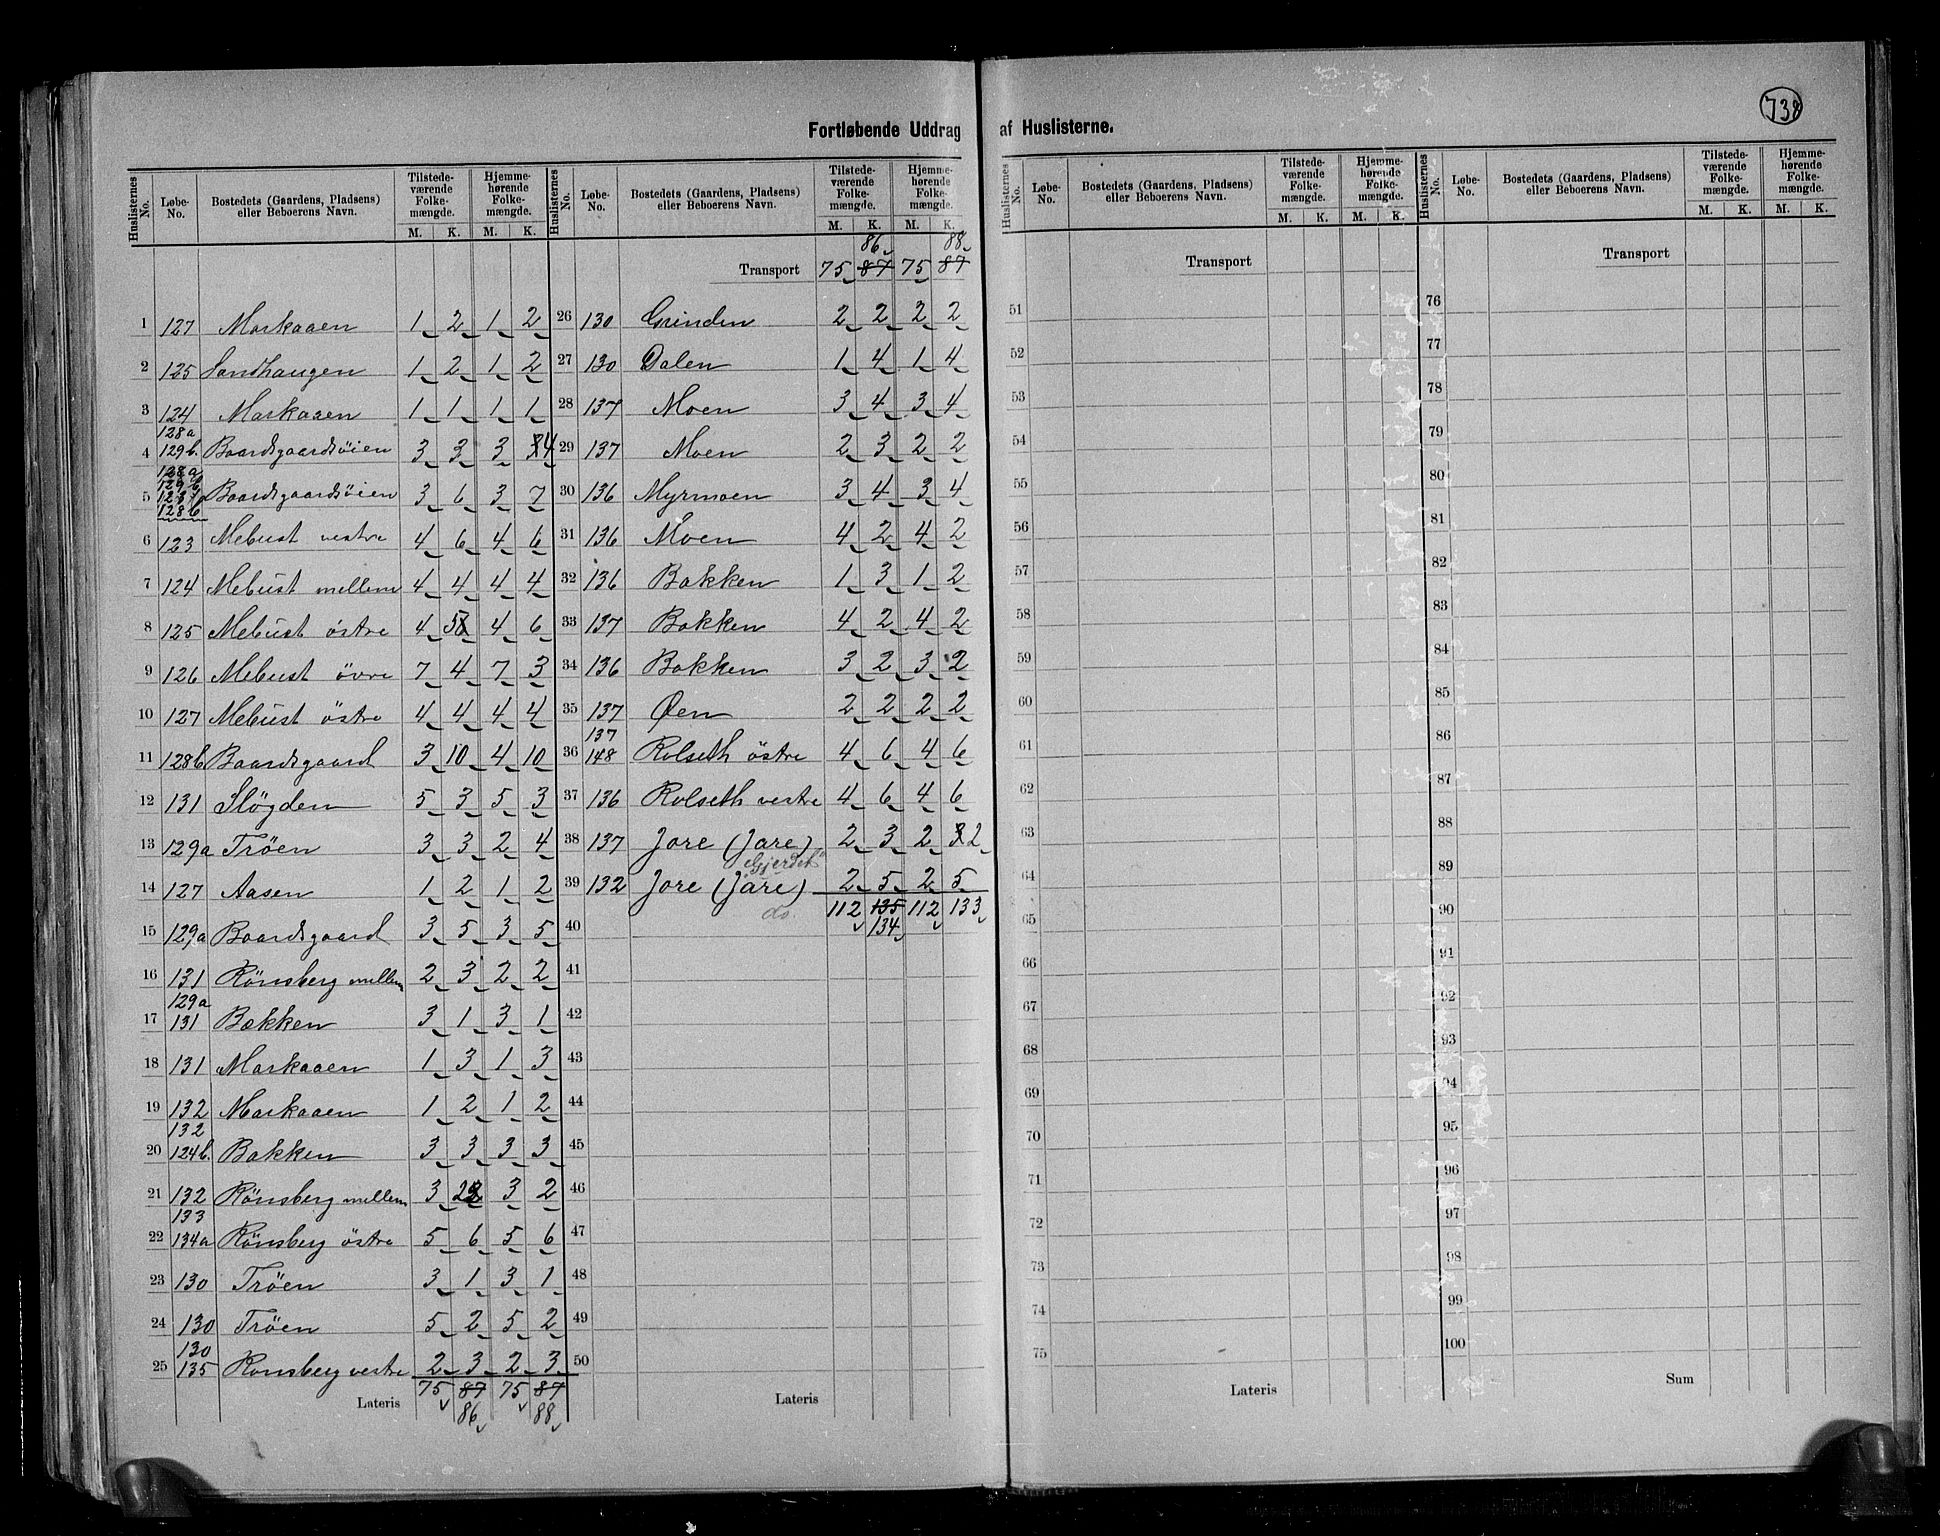 738
Fortløbende Uddrag af Huslisterne.
Huslisternes No. Løbe-No. Bostedets (Gaardens, Pladsens) eller Beboerens Navn. Tilstedeværende Folkemængde. M. K. Hjemmehørende Folkemængde. M. K.
1 127 Moskaaen 1 2 1 2
2 125 Sandhaugen 1 2 1 2
3 124 Moskaaen 1 1 1 1
4 128a 129b. Baardsgaardsöien 3 3 3 4
5 Baardsgaardsöien 3 6 3 7
6 123 Mebust vestre 4 6 4 6
7 124 Mebust mellem 4 4 4 4
8 125 Mebust östre 4 5 4 6
9 126 Mebust övre 7 4 7 3
10 127 Mebust östre 4 4 4 4
11 128b Baardsgaard 3 10 4 10
12 131 Slögden 5 3 5 3
13 129a Tröen 3 3 2 4
14 127 Aasen 1 2 1 2
15 129a Baardsgaard 3 5 3 5
16 131 Rönsberg mellem 2 3 2 2
17 129a 131 Bakken 3 1 3 1
18 131 Moskaaen 1 3 1 3
19 132 Moskaaen 1 2 1 2
20 132 124b. Bakken 3 3 3 3
21 132 Rönsberg mellem 3 2 3 2
22 133 134a Rönsberg östre 5 6 5 6
23 130 Tröen 3 1 3 1
24 130 Tröen 5 2 5 2
25 130 135 Rönsberg vestre 2 3 2 3
Lateris 75 87 75 87
86 88
Huslisternes No. Løbe-No. Bostedets (Gaardens, Pladsens) eller Beboerens Navn. Tilstedeværende Folkemængde. M. K. Hjemmehørende Folkemængde. M. K.
86 88
Transport 75 87 75 87
26 130 Grinden 2 2 2 2
27 130 Dalen 1 4 1 4
28 137 Moen 3 4 3 4
29 137 Moen 2 3 2 2
30 136 Myrmoen 3 4 3 4
31 136 Moen 4 2 4 2
32 136 Bakken 1 3 1 2
33 137 Bakken 4 2 4 2
34 136 Bakken 3 2 3 2
35 137 Øen 2 2 2 2
36 137 148 Rolseth östre 4 6 4 6
37 136 Rolseth vestre 4 6 4 6
38 137 Jore (Jare) 2 3 2 2
"Gjerdet"
39 132 Jore (Jare) 2 5 2 5
do. 112 135 112 133
40 134
41
42
43
44
45
46
47
48
49
50
Lateris
Huslisternes No. Løbe-No. Bostedets (Gaardens, Pladsens) eller Beboerens Navn. Tilstedeværende Folkemængde. M. K. Hjemmehørende Folkemængde. M. K.
Transport
51
52
53
54
55
56
57
58
59
60
61
62
63
64
65
66
67
68
69
70
71
72
73
74
75
Lateris
Huslisternes No. Løbe-No. Bostedets (Gaardens, Pladsens) eller Beboerens Navn. Tilstedeværende Folkemængde. M. K. Hjemmehørende Folkemængde. M. K.
Transport
76
77
78
79
80
81
82
83
84
85
86
87
88
89
90
91
92
93
94
95
96
97
98
99
100
Sum